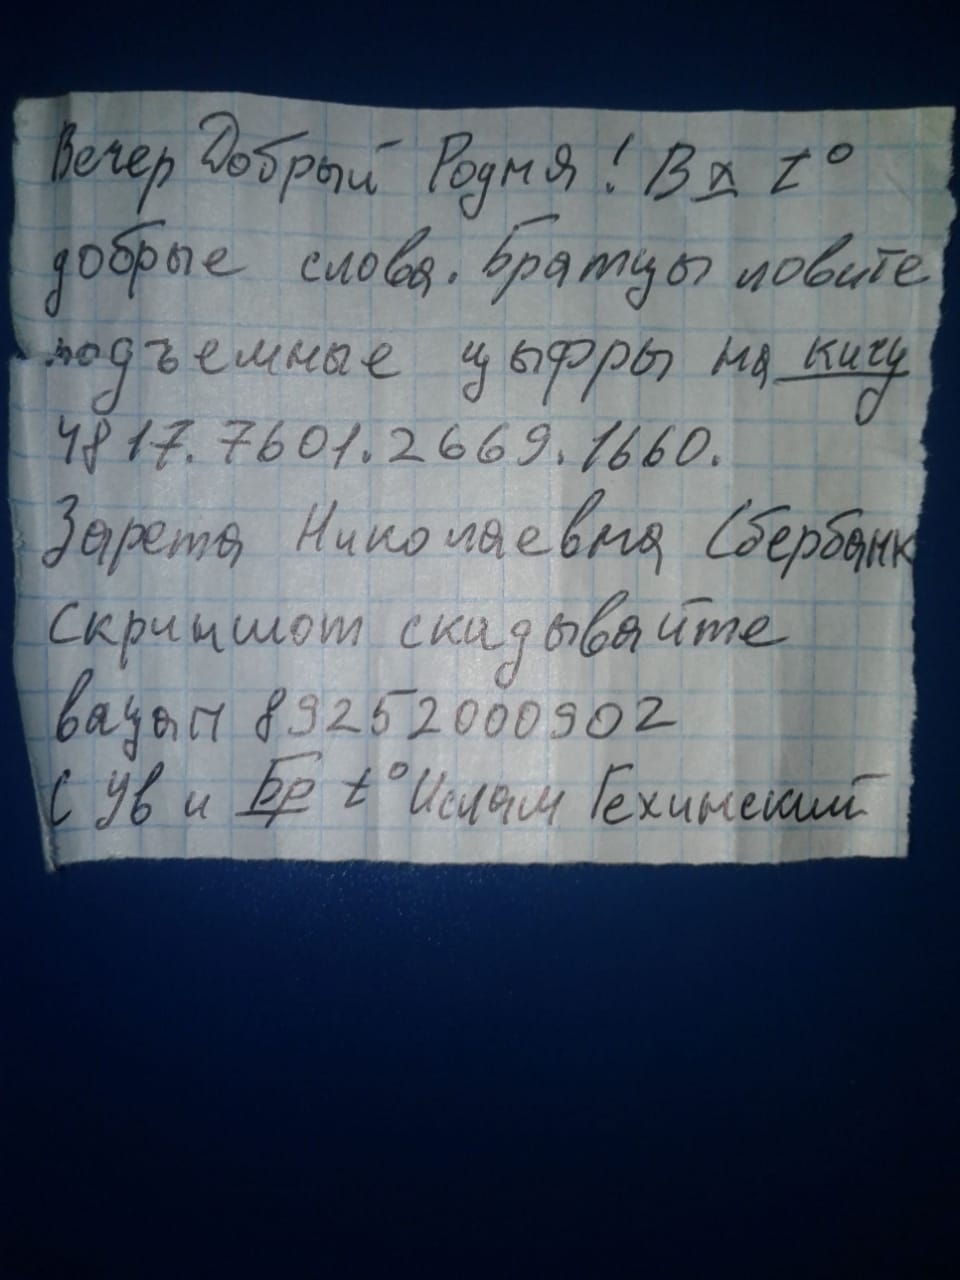 Вечер Добрый Родня! В х t°
добрые слова. Братцы ловите
подъемные цыфры на кичу
4817.7601.2669.1660.
Зарета Николаевна Сбербанк
Скриншот скидывайте
вацап 89252000902
С Ув и Бр t° Ислам Гехинский